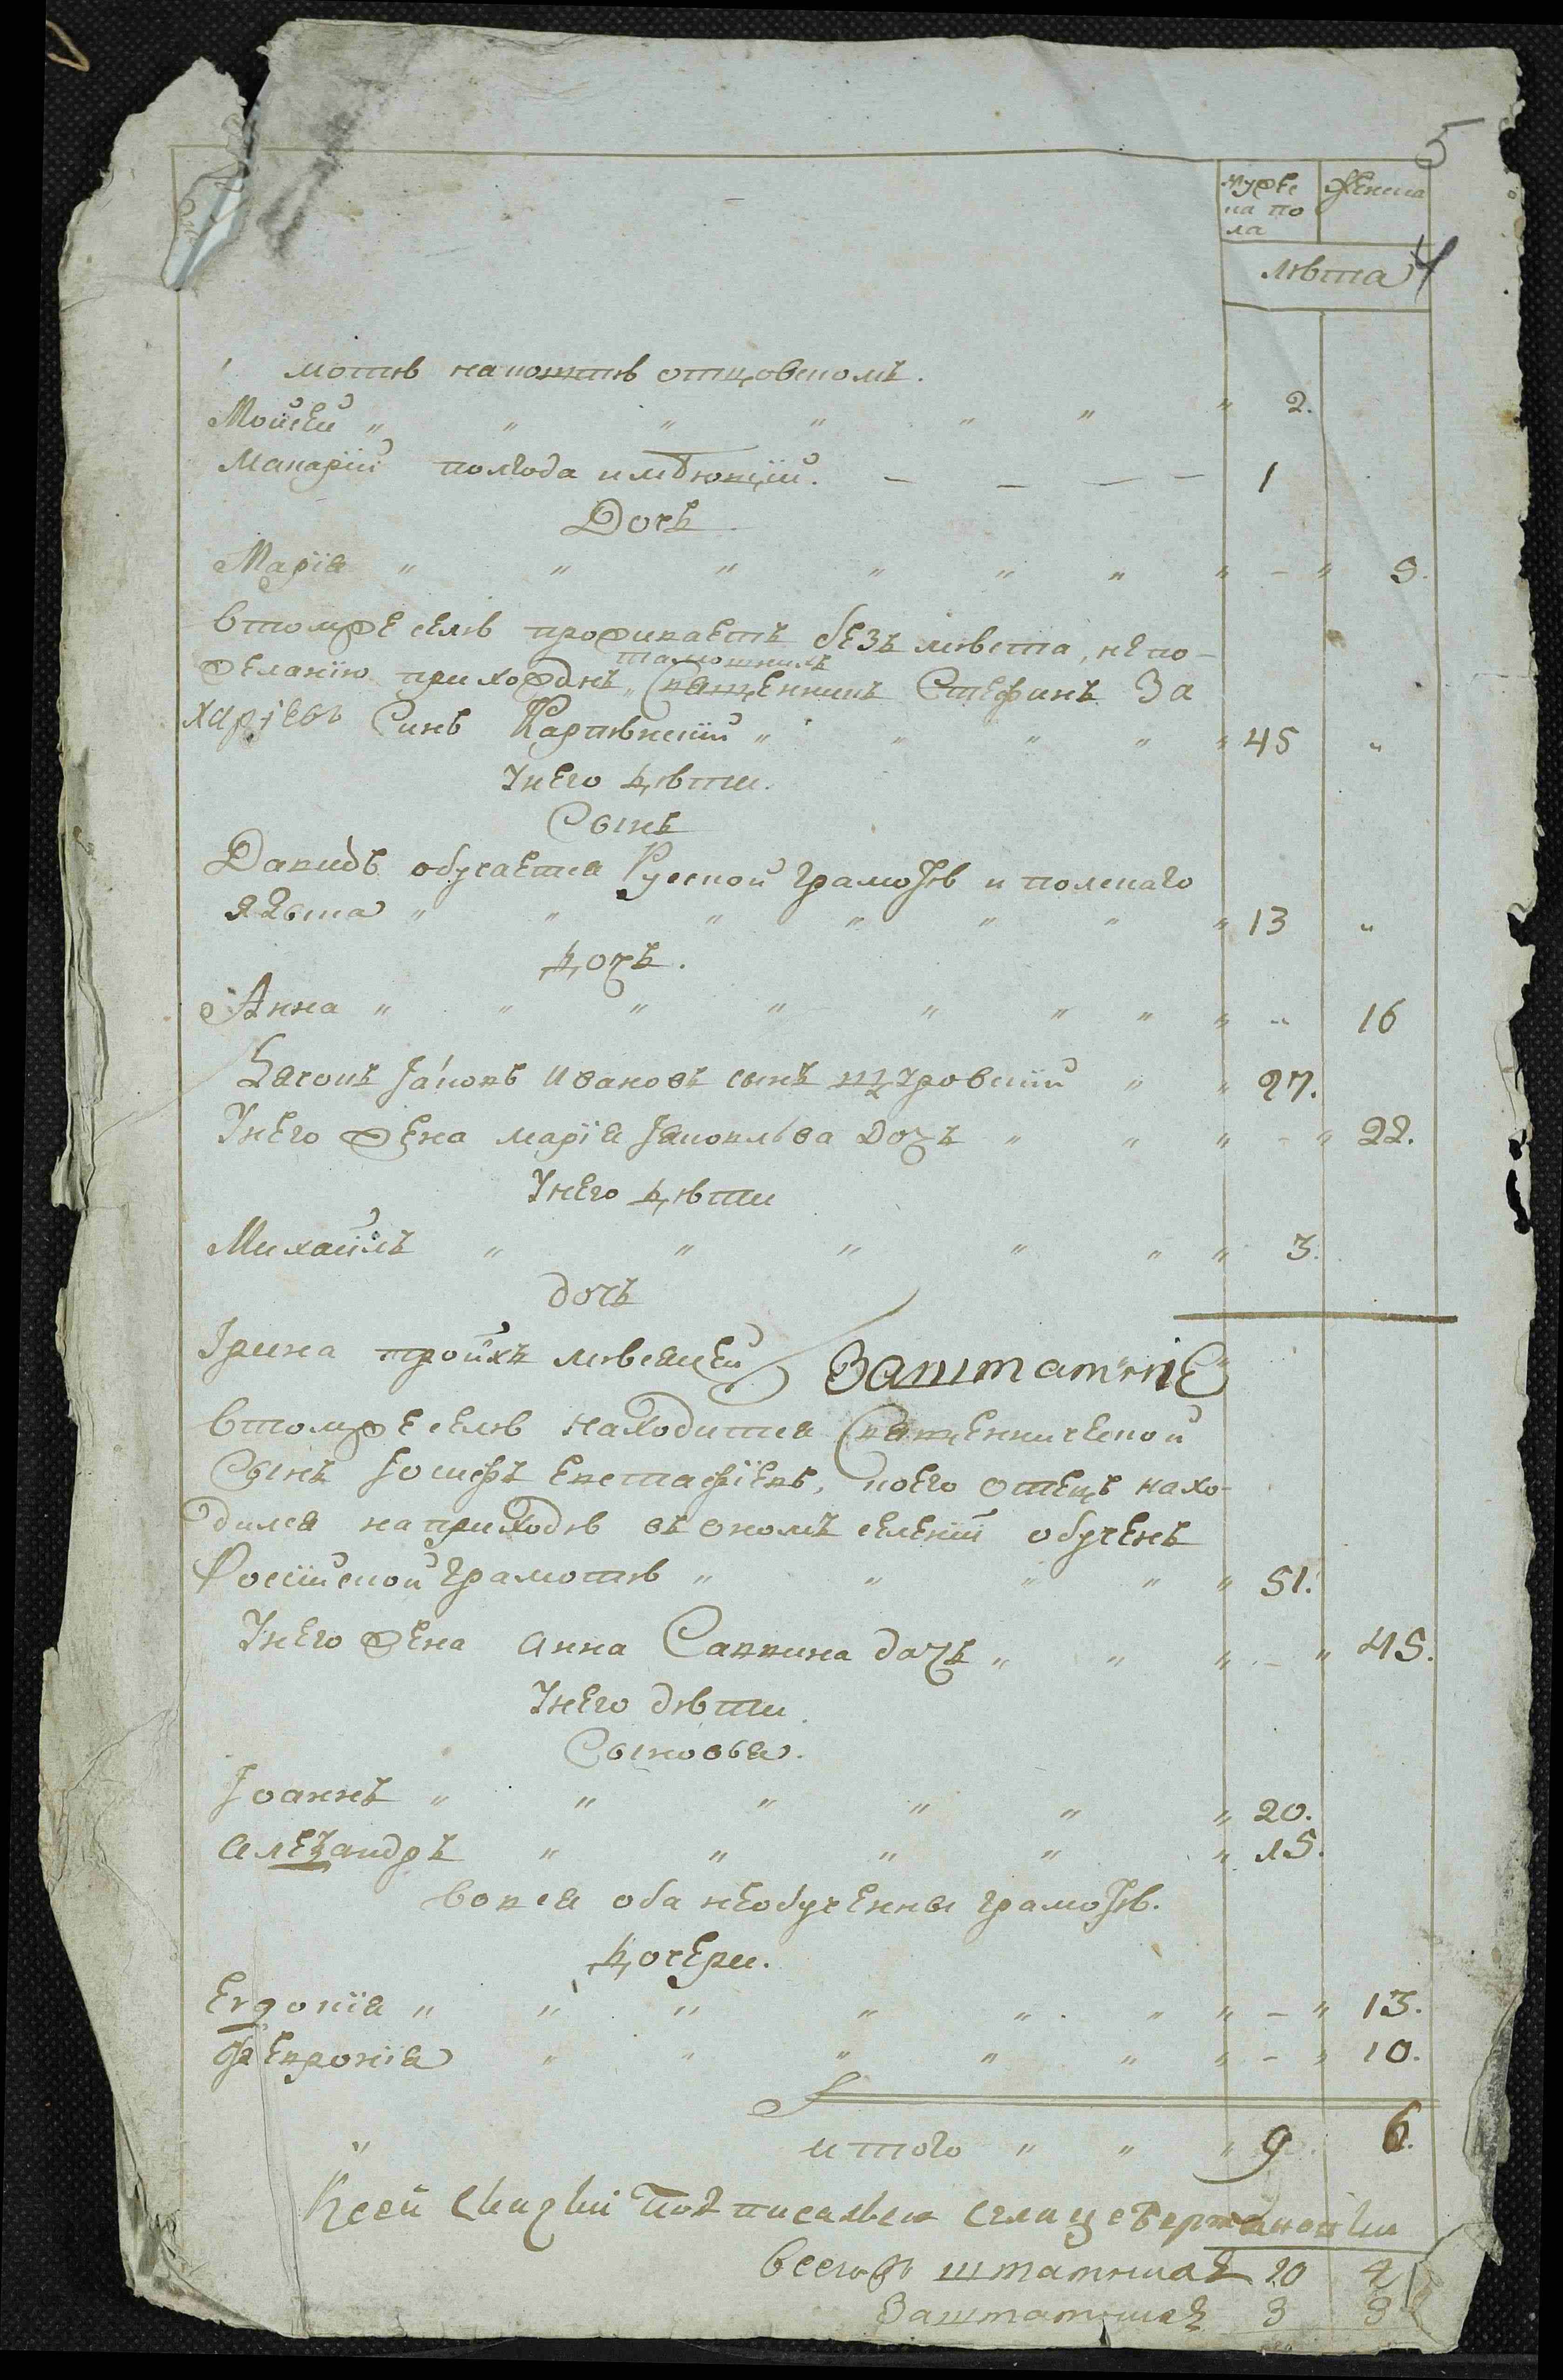 5
мужеска пола
женска
лѣта
4
мотѣ на копштѣ отцовскомъ.
Мойсей " " " " " " 2.
Макарій полгода имѣющій. — — — — 1
Дочь
Марія " " " " " " " – " 9.
Втомже селѣ проживаетъ безъ мѣста, не по-
тамошнихъ
желанію прихожанъ, Священникъ Стефанъ За
харіевъ Синъ Карпѣнскій " " " " " 45 "
Унего Дѣти.
Сынъ
Давидъ обучается Руской грамотѣ и полскаго
языка " " " " " " " 13 "
Дочь.
Анна " " " " " " " " " 16
Дячокъ Іаковъ Ивановъ сынъ Щуровскій " " 27.
Унего жена марія Іаковлѣва дочь " " " – " 22.
Унего Дѣти
Михайлъ " " " " " " 3.
дочь
Ірина тройхъ мѣсяцей
Заштатніе
Втомже селѣ находится Священнической
Сынъ Іосифъ Евстафіевъ, коего отецъ нахо-
дился на приходѣ въ ономъ селеніи обученъ
Россійской грамотѣ " " " " " 51.
Унего жена Анна Саввина дочь " " " – " 45.
Унего дѣти
Сыновья.
Іоаннъ " " " " " " 20.
Алеѯандръ " " " " " 15.
воися оба необученны грамотѣ.
Дочери.
Евгонія " " " " " " " – " 13.
Февронія " " " " " " – " 10.
" итого " " " 9 6.
Ксей сказки подписался села
всего штатныхъ 20 4
Заштатныхъ 3 3